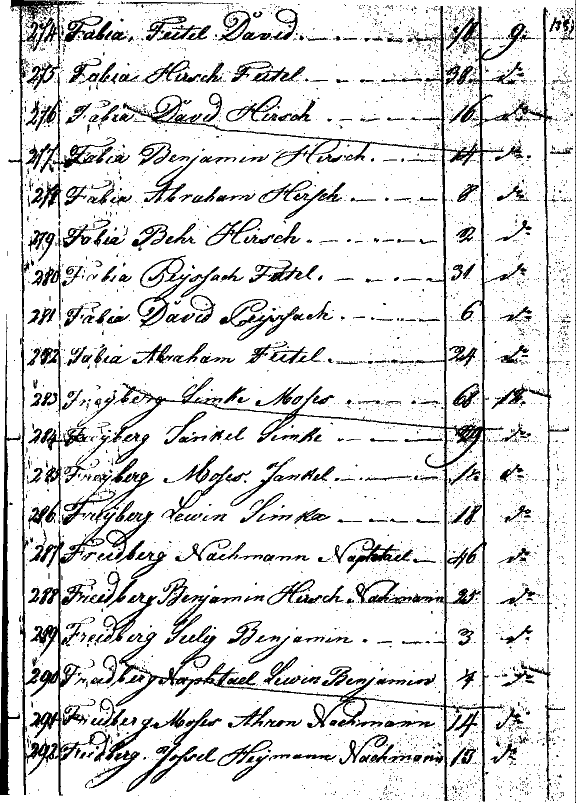 274 Fabia, Feitel David. 78 9.
275 Fabia Hirsch Feitel. 38. do
276 Fabia David Hirsch 16 do
277. Fabia Benjamin Hirsch. 14 do
278 Fabia Abraham Hirsch 8 do
279 Fabia Behr Hirsch. 2 do
280 Fabia Peyssach Feitel. 31 do
281 Fabia David Peyssach 6 do
282 Fabia Abraham Feitel. 24 do
283 Freyberg Simke Moses 68 18.
284 Freyberg Jankel Simke 29 do
285 Freyberg Moses. Jankel. do
286 Freyberg Lewin Simke 18 do
287 Freidberg Nachmann Naphtael 46 do
288 Freidberg Benjamin Hirsch Nachmann 25 do
289 Freidberg Seelig Benjamin. 3 do
290 Freidberg Naphtael Lewin Benjamin 4 do
291 Freidberg Moses Ahron Nachmann 14 do
292 Freidberg. Jossel Heymann Nachmann 13 do